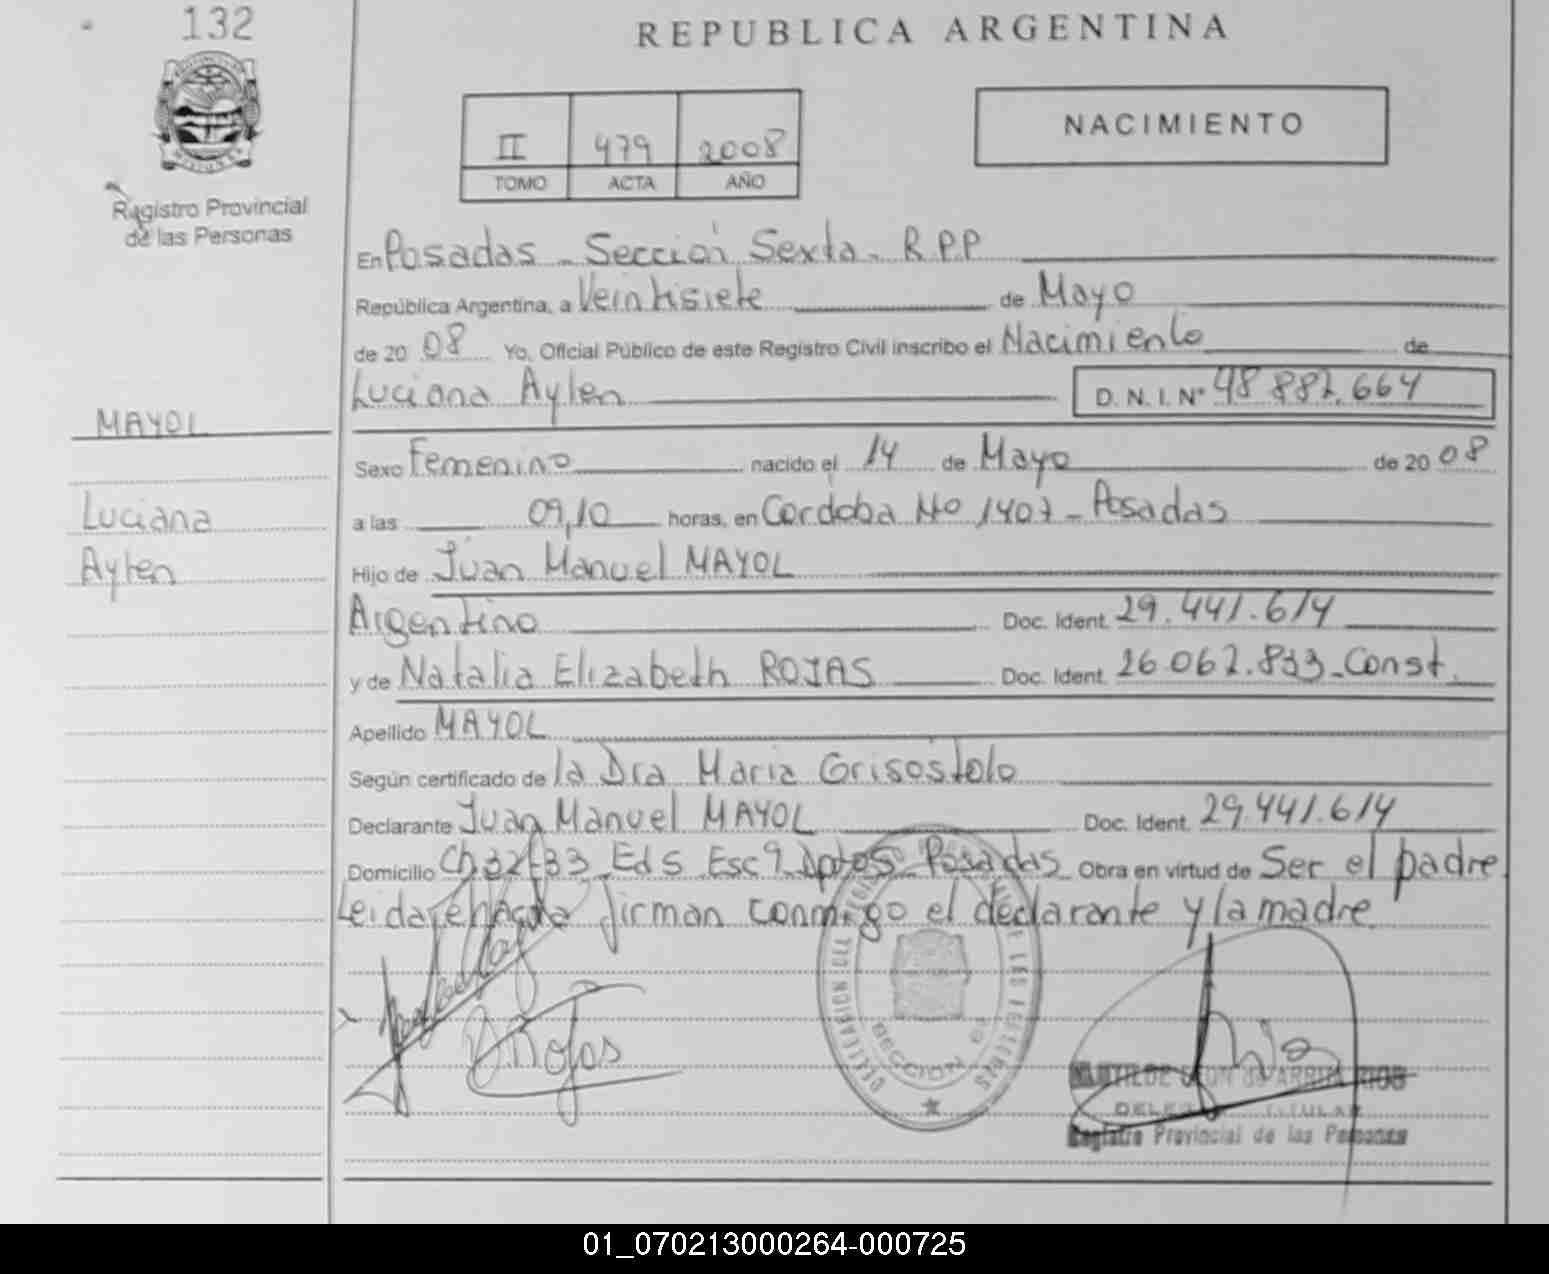 132
REPUBLICA ARGENTINA
NACIMIENTO
II 479 2008
TOMO ACTA AÑO
Registro Provincial
de las Personas
En Posadas - Sección Sexta - R.P.P
República Argentina, a Veintisiete de Mayo
de 20 08 Yo, Oficial Público de este Registro Civil inscribo el Nacimiento de
Luciana Aylen D. N. I. Nº 48 882.664
MAYOL
Sexo Femenino nacido el 14 de Mayo de 20 08
Luciana
a las 09,10 horas, en Cordoba No 1407 - Posadas
Aylen
Hijo de Juan Manuel MAYOL
Argentino Doc. Ident. 29.441.614
y de Natalia Elizabeth ROJAS Doc. Ident. 26.062.833 - Const.
Apellido MAYOL
Según certificado de la Dra Maria Grisostolo
Declarante Juan Manuel MAYOL Doc. Ident. 29.441.614
Domicilio Ch 32-33 Ed 5 Esc 9 Dpto 5 - Posadas Obra en virtud de Ser el padre
Leida el Acta firman conmigo el declarante y la madre
Rojas
SECCION
DE LAS PERSONAS
Registro Provincial de las Personas
01_070213000264-000725